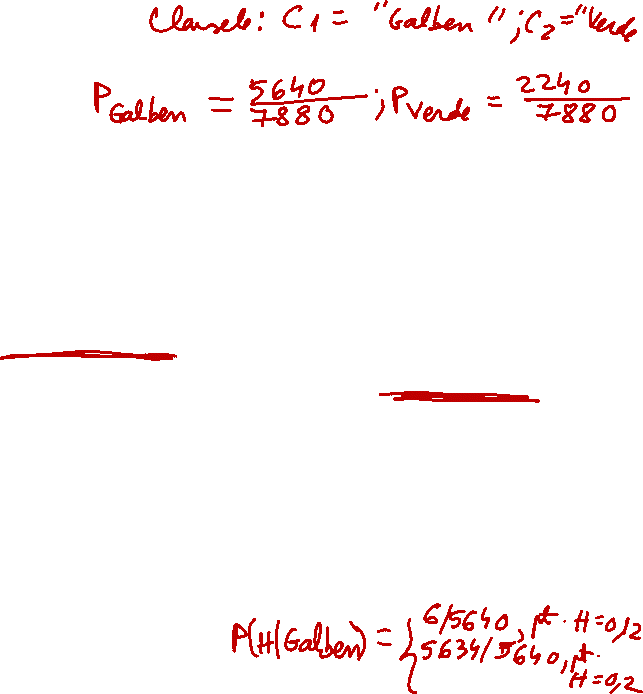 Clasele: C1 = "Galben"; C2 = "Verde
PGalben = 5640/7880 ; PVerde = 2240/7880
P(H|Galben) = { 6/5640, pt. H=0,2
5634/5640, pt.
H=0,2